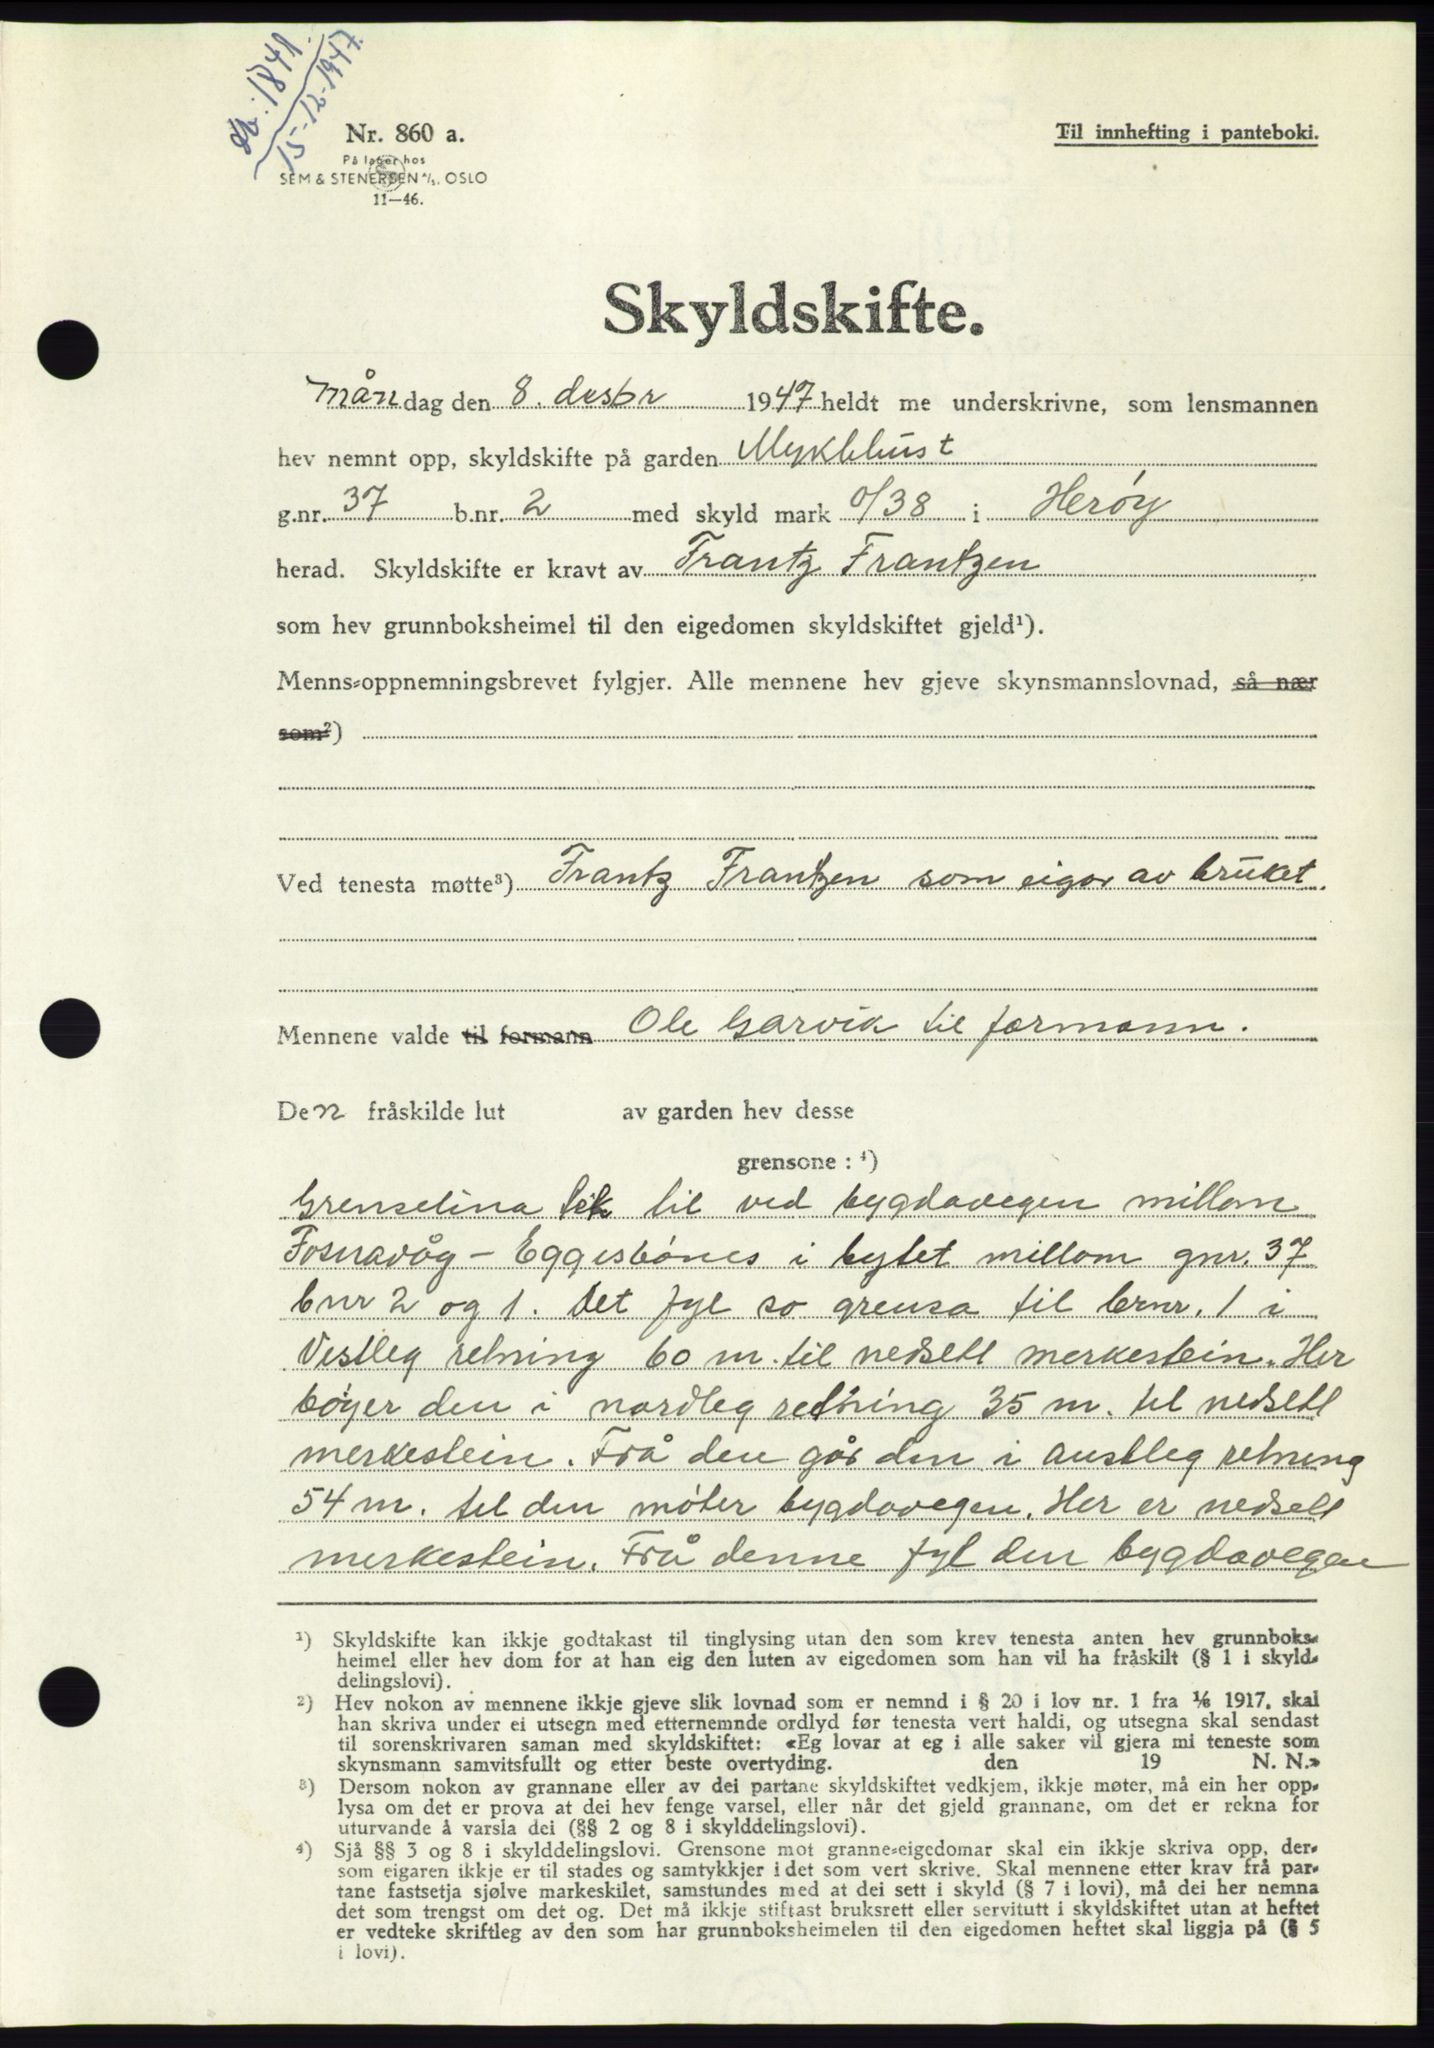 Nr. 1841
15-12-1947.
Nr. 860 a.
På lager hos
SEM & STENERSEN A/S. OSLO
11—46.
Til innhefting i panteboki.
Skyldskifte.
Måndag den 8. desbr 1947 heldt me underskrivne, som lensmannen
hev nemnt opp, skyldskifte på garden Myklebust
g.nr. 37 b.nr. 2 med skyld mark 0/38 i Herøy
herad. Skyldskifte er kravt av Frantz Frantzen
som hev grunnboksheimel til den eigedomen skyldskiftet gjeld¹).
Menns-oppnemningsbrevet fylgjer. Alle mennene hev gjeve skynsmannslovnad, så nær
som²)
Ved tenesta møtte³) Frantz Frantzen som eigar av bruket.
Mennene valde til formann Ole Garvik til formann.
Den fråskilde lut av garden hev desse
grensone : ⁴)
Grenselina tek til ved bygdavegen millom
Fosnavåg - Eggesbönes i bytet millom gnr. 37
bnr 2 og 1. Det fyl so grensa til brnr. 1 i
Vestleg retning 60 m. til nedsett merkestein. Her
bøyer den i nordleg retning 35 m. til nedsett
merkestein. Frå den går den i austleg retning
54 m. til den møter bygdavegen. Her er nedsett
merkestein. Frå denne fyl den bygdavegen
¹) Skyldskifte kan ikkje godtakast til tinglysing utan den som krev tenesta anten hev grunnboks-
heimel eller hev dom for at han eig den luten av eigedomen som han vil ha fråskilt (§ 1 i skyld-
delingslovi).
²) Hev nokon av mennene ikkje gjeve slik lovnad som er nemnd i § 20 i lov nr. 1 fra 1/6 1917, skal
han skriva under ei utsegn med etternemnde ordlyd før tenesta vert haldi, og utsegna skal sendast
til sorenskrivaren saman med skyldskiftet: «Eg lovar at eg i alle saker vil gjera mi teneste som
skynsmann samvitsfullt og etter beste overtyding. den 19 N. N.»
³) Dersom nokon av grannane eller av dei partane skyldskiftet vedkjem, ikkje møter, må ein her opp-
lysa om det er prova at dei hev fenge varsel, eller når det gjeld grannane, om det er rekna for
uturvande å varsla dei (§§ 2 og 8 i skylddelingslovi).
⁴) Sjå §§ 3 og 8 i skylddelingslovi. Grensone mot granne-eigedomar skal ein ikkje skriva opp, der-
som eigaren ikkje er til stades og samtykkjer i det som vert skrive. Skal mennene etter krav frå par-
tane fastsetja sjølve markeskilet, samstundes med at dei sett i skyld (§ 7 i lovi), må dei her nemna
det som trengst om det og. Det må ikkje stiftast bruksrett eller servitutt i skyldskiftet utan at heftet
er vedteke skriftleg av den som har grunnboksheimelen til den eigedomen heftet skal liggja på (§ 5
i lovi).